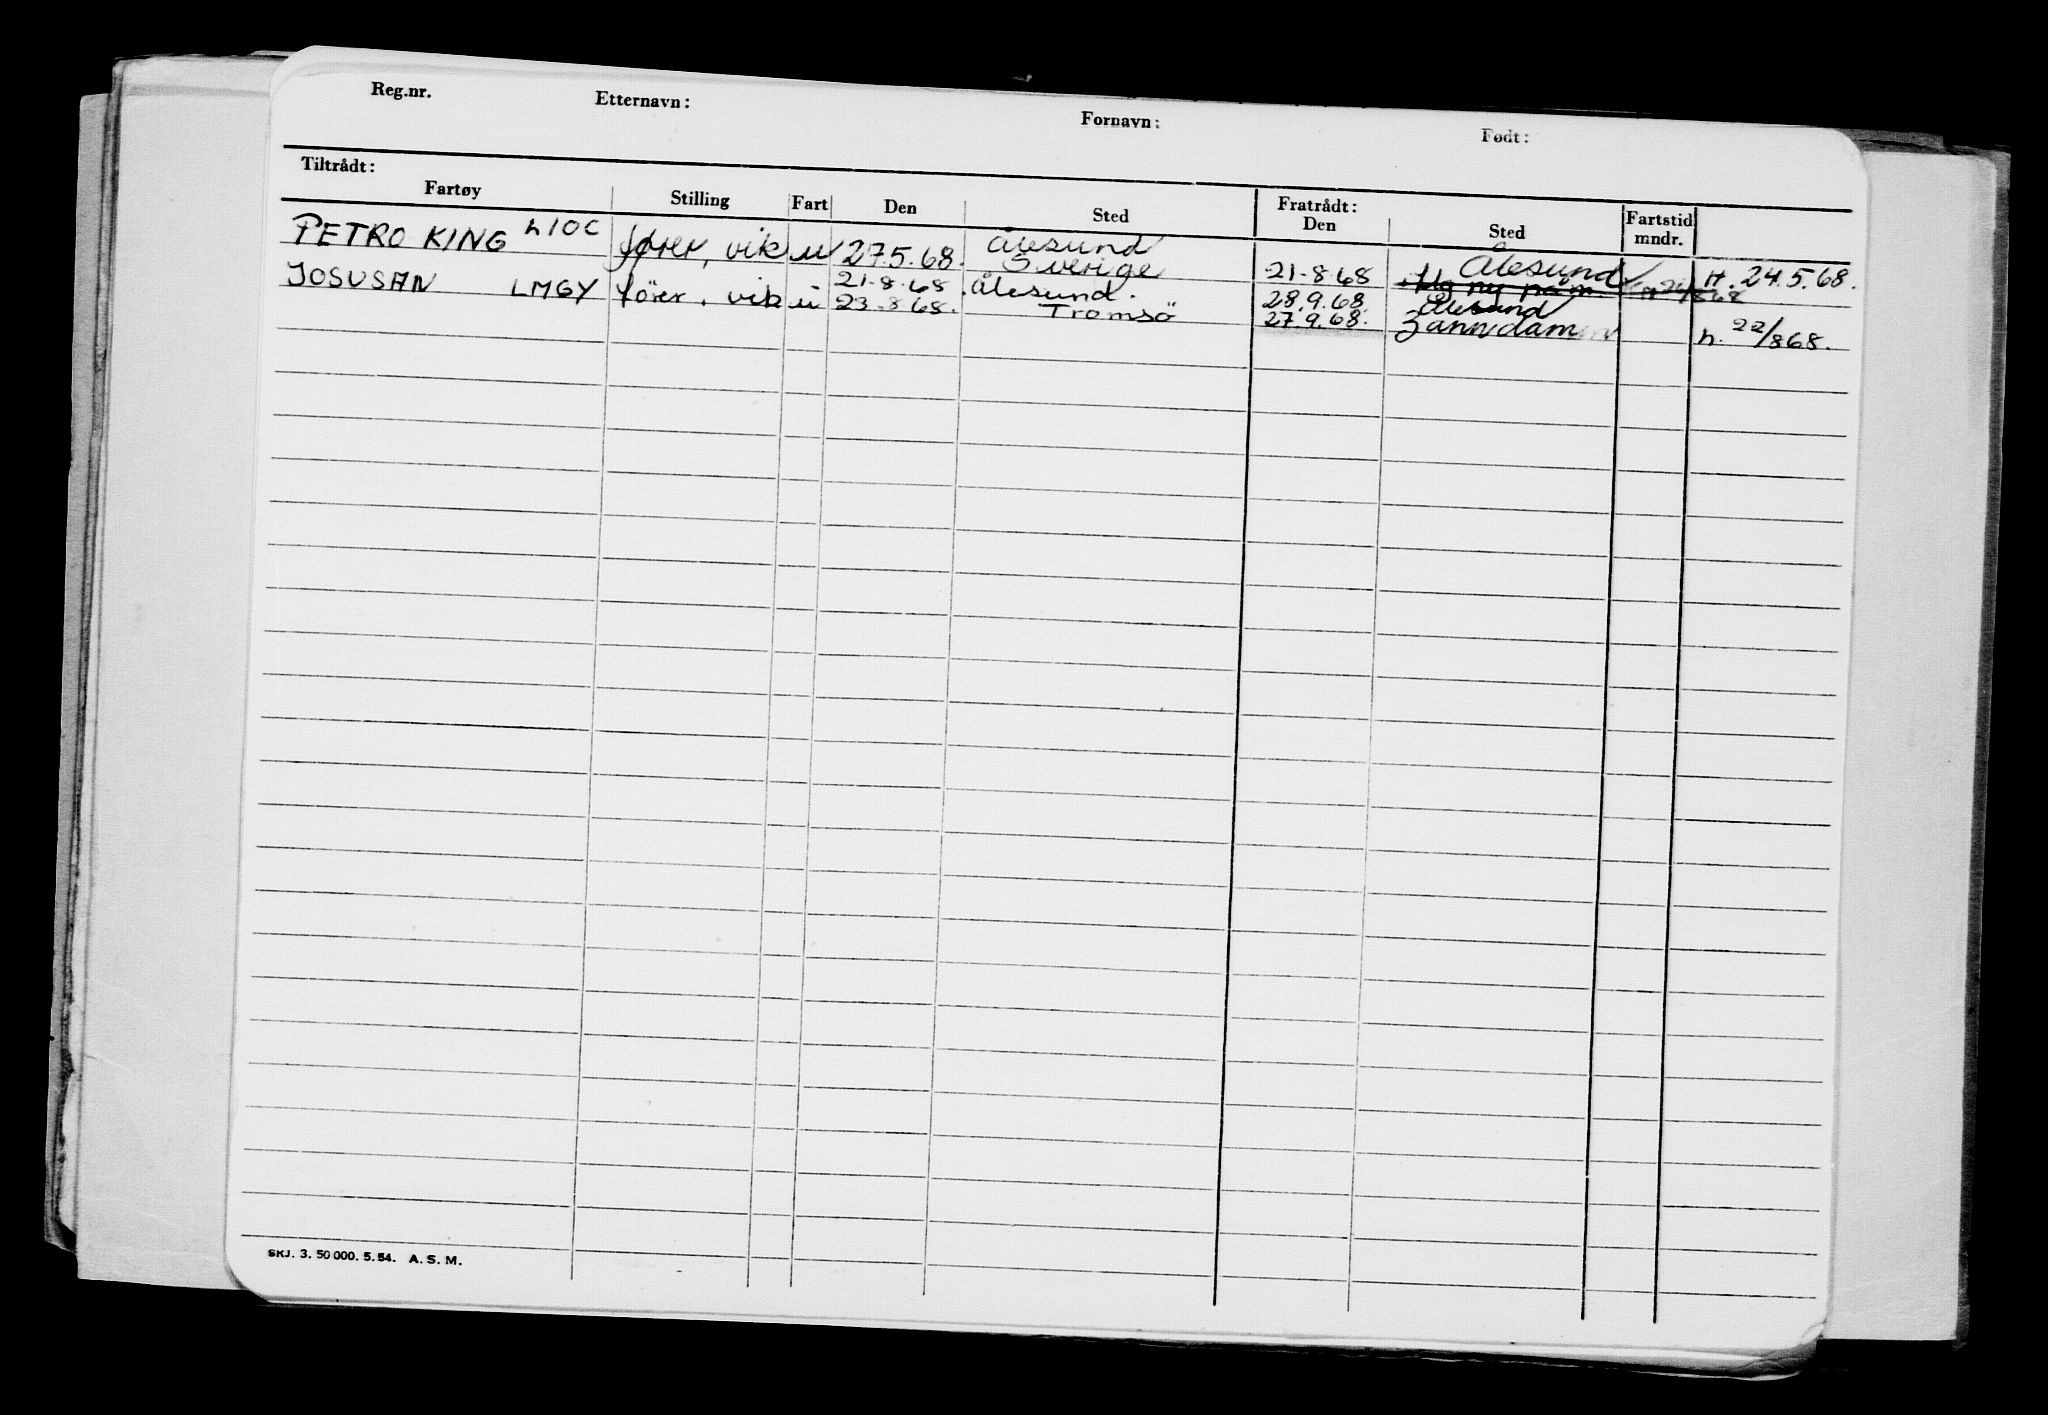 Reg.nr. Etternavn: Fornavn: Født:
Tiltrådt: Fratrådt:
Fartøy Stilling Fart Den Sted Den Sted Fartstid mndr.
PETRO KING LIOC fører, vik u 27.5.68. Ålesund Sverige 21-8-68 Ålesund H. 24.5.68.
JOSUSAN LMGY förer. vik u 21-8-68. Ålesund. 28.9.68 Ålesund
23-8-68. Tromsö 27.9.68. Zanndam h. 22/868.
SKJ. 3. 50 000. 5. 54. A. S. M.